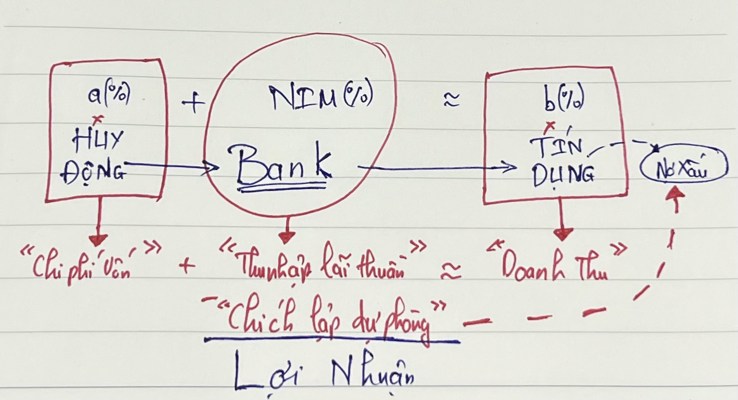 a(%) + NIM(%) ≈ b(%)
x x
HUY TÍN
ĐỘNG Bank DỤNG Nợ xấu
"Chi phí vốn" + "Thu nhập lãi thuần" ≈ "Doanh Thu"
- "Chích lập dự phòng"
Lợi Nhuận